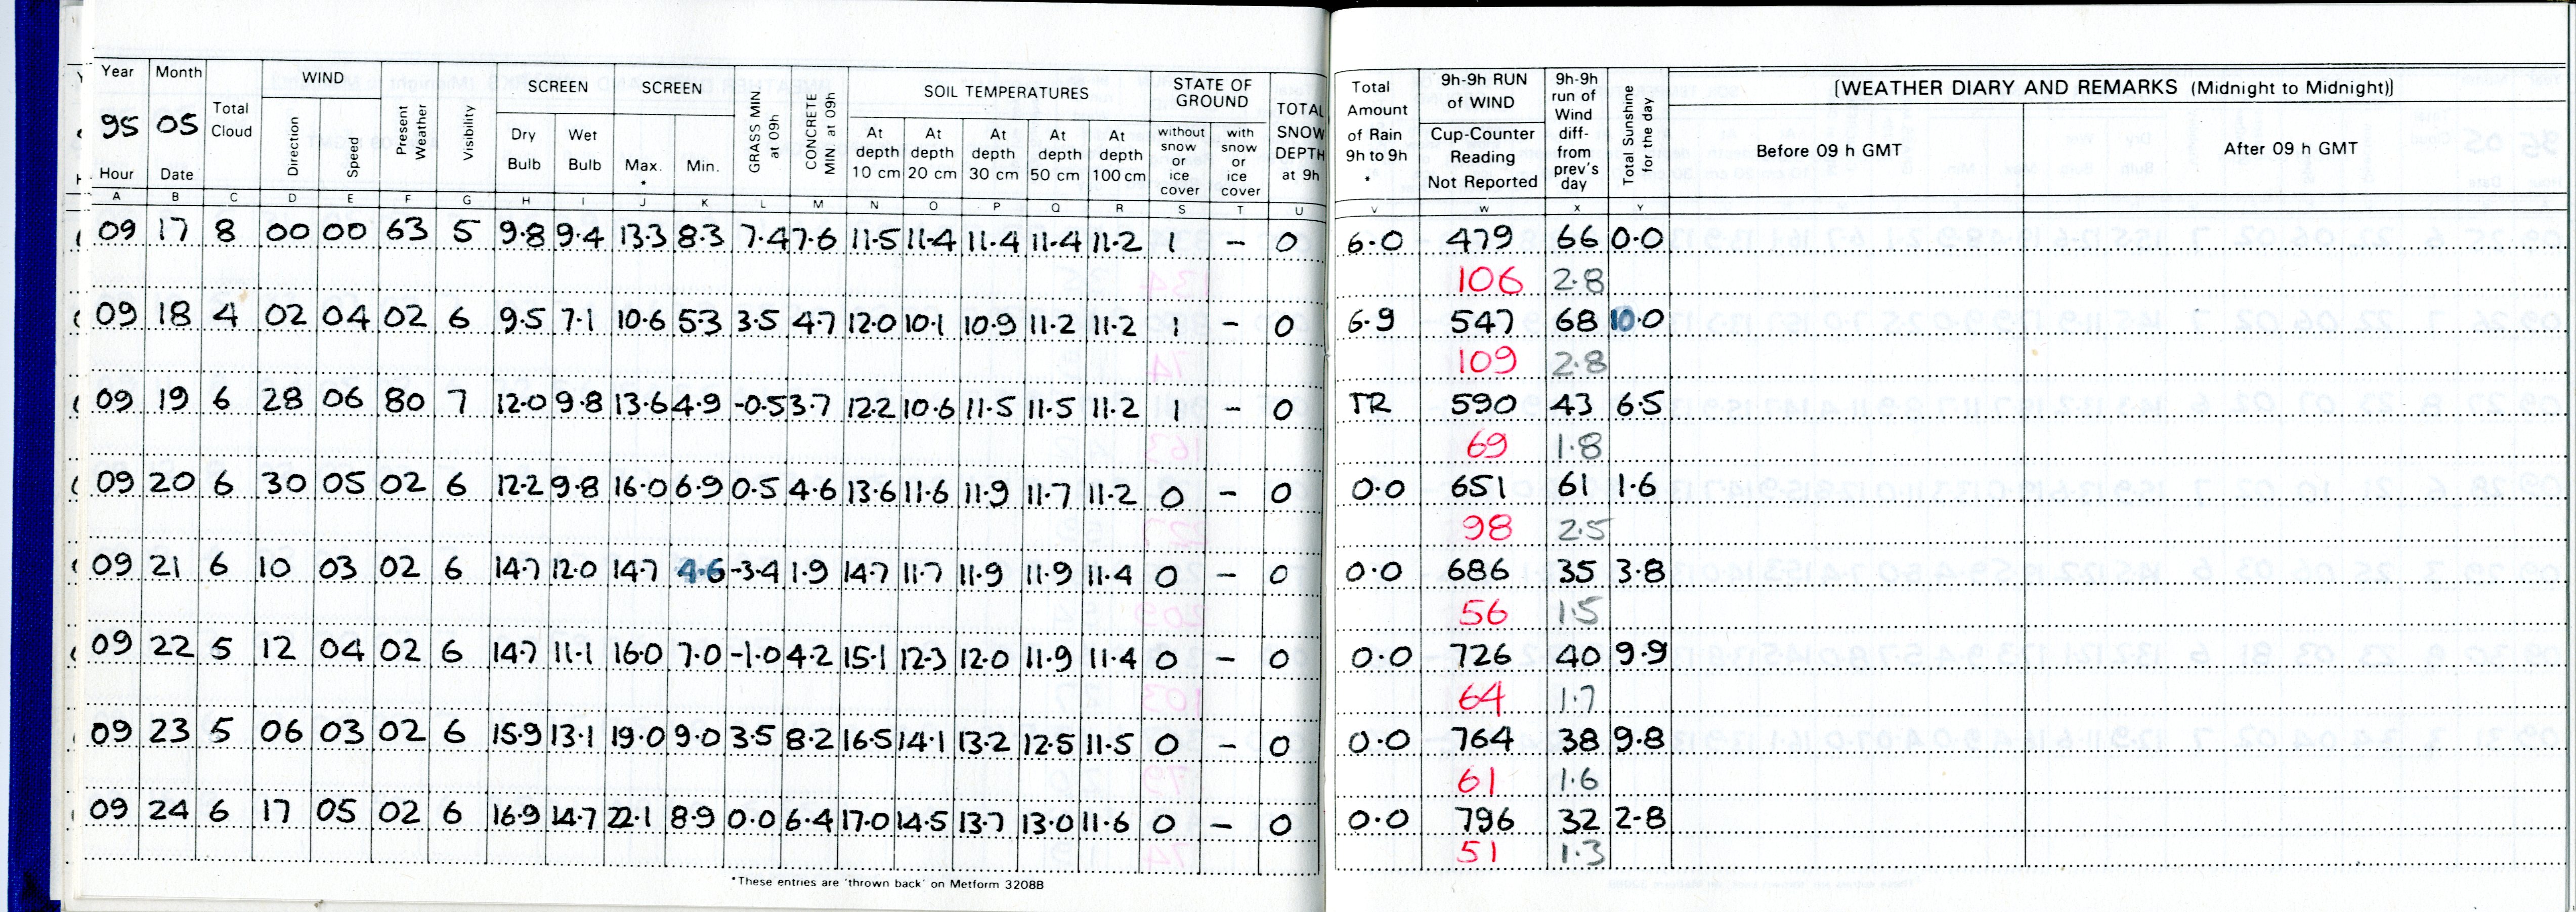 Year Month Total Cloud WIND Present Weather Visibility SCREEN SCREEN GRASS MIN at 09h CONCRETE MIN at 09h SOIL TEMPERATURES STATE OF GROUND TOTAL SNOW DEPTH at 9h Total Amount of Rain 9h to 9h * 9h-9h RUN of WIND 9h-9h run of Wind diff- from prev's day Total Sunshine for the day [WEATHER DIARY AND REMARKS (Midnight to Midnight)]
95 05 Direction Speed Dry Bulb Wet Bulb Max. * Min. At depth 10 cm At depth 20 cm At depth 30 cm At depth 50 cm At depth 100 cm without snow or ice cover with snow or ice cover Cup-Counter Reading Not Reported Before 09 h GMT After 09 h GMT
Hour Date
A B C D E F G H I J K L M N O P Q R S T U V W X Y
09 17 8 00 00 63 5 9.8 9.4 13.3 8.3 7.4 7.6 11.5 11.4 11.4 11.4 11.2 1 - 0 6.0 479 66 0.0
106 2.8
09 18 4 02 04 02 6 9.5 7.1 10.6 5.3 3.5 4.7 12.0 10.1 10.9 11.2 11.2 1 - 0 6.9 547 68 10.0
109 2.8
09 19 6 28 06 80 7 12.0 9.8 13.6 4.9 -0.5 3.7 12.2 10.6 11.5 11.5 11.2 1 - 0 TR 590 43 6.5
69 1.8
09 20 6 30 05 02 6 12.2 9.8 16.0 6.9 0.5 4.6 13.6 11.6 11.9 11.7 11.2 0 - 0 0.0 651 61 1.6
98 2.5
09 21 6 10 03 02 6 14.7 12.0 14.7 4.6 -3.4 1.9 14.7 11.7 11.9 11.9 11.4 0 - 0 0.0 686 35 3.8
56 1.5
09 22 5 12 04 02 6 14.7 11.1 16.0 7.0 -1.0 4.2 15.1 12.3 12.0 11.9 11.4 0 - 0 0.0 726 40 9.9
64 1.7
09 23 5 06 03 02 6 15.9 13.1 19.0 9.0 3.5 8.2 16.5 14.1 13.2 12.5 11.5 0 - 0 0.0 764 38 9.8
61 1.6
09 24 6 17 05 02 6 16.9 14.7 22.1 8.9 0.0 6.4 17.0 14.5 13.7 13.0 11.6 0 - 0 0.0 796 32 2.8
51 1.3
*These entries are 'thrown back' on Metform 3208B